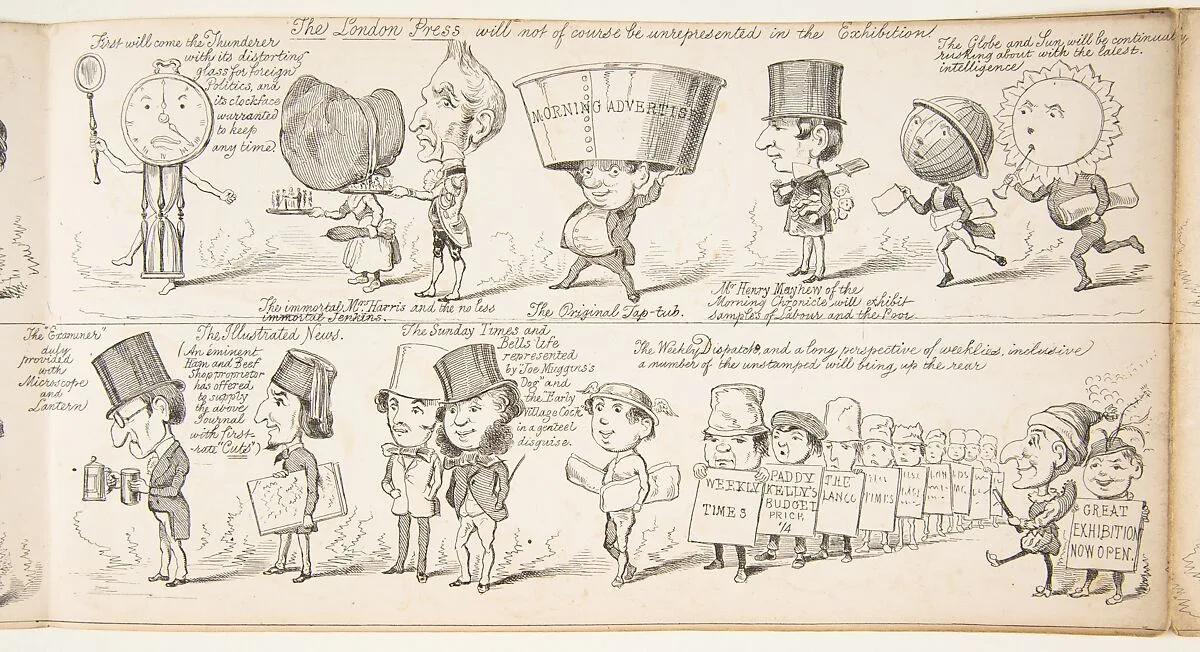 The London Press will not of course be unrepresented in the Exhibition.
First will come the Thunderer
with its distorting
glass for foreign
Politics, and
its clockface
warranted
to keep
any time.
The immortal Mrs Harris and the no less
immortal Jenkins.
MORNING ADVERTIS
The Original Tap-tub.
Mr Henry Mayhew of the
Morning Chronicle will exhibit
samples of Labour and the Poor.
The Globe and Sun will be continually
rushing about with the latest
intelligence
The "Examiner"
duly
provided
with
Microscope
and
Lantern
The Illustrated News.
(An eminent
Ham and Beef
Shop proprietor
has offered
to supply
the above
Journal
with first-
-rate "Cuts")
The Sunday Times and
Bells Life
represented
by "Joe Muggins's
Dog" and
the "Early
Village Cock"
in a genteel
disguise.
The Weekly Dispatch, and a long perspective of weeklies, inclusive
a number of the unstamped will bring up the rear
WEEKLY
TIMES
PADDY
KELLY'S
BUDGET
PRICE
1/4
THE
LANCE
TIMES
GREAT
EXHIBITION
NOW OPEN.